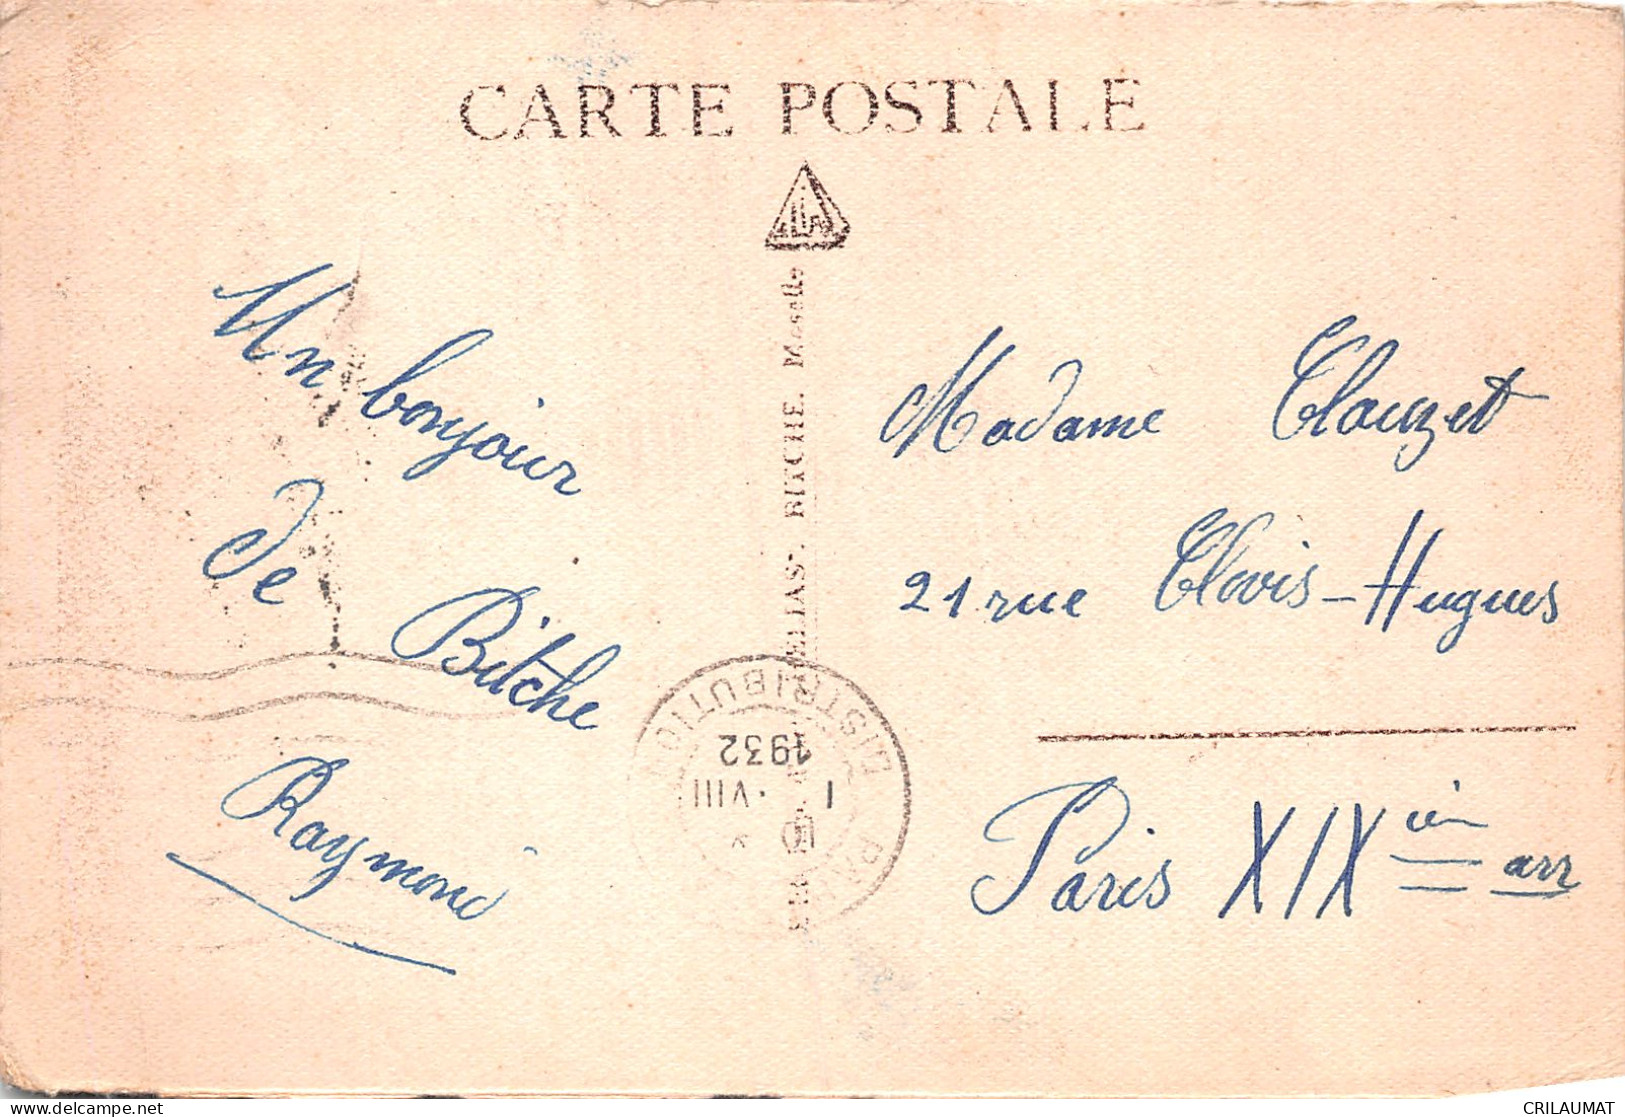 CARTE POSTALE
Un bonjour
de
Bitche
Raymond
ELIAS, BITCHE, Moselle
Madame Clauzet
21 rue Clovis-Hugues
Paris XIX ième arr
DISTRIBUTION
1 VIII
1932
delcampe.net
CRILAUMAT